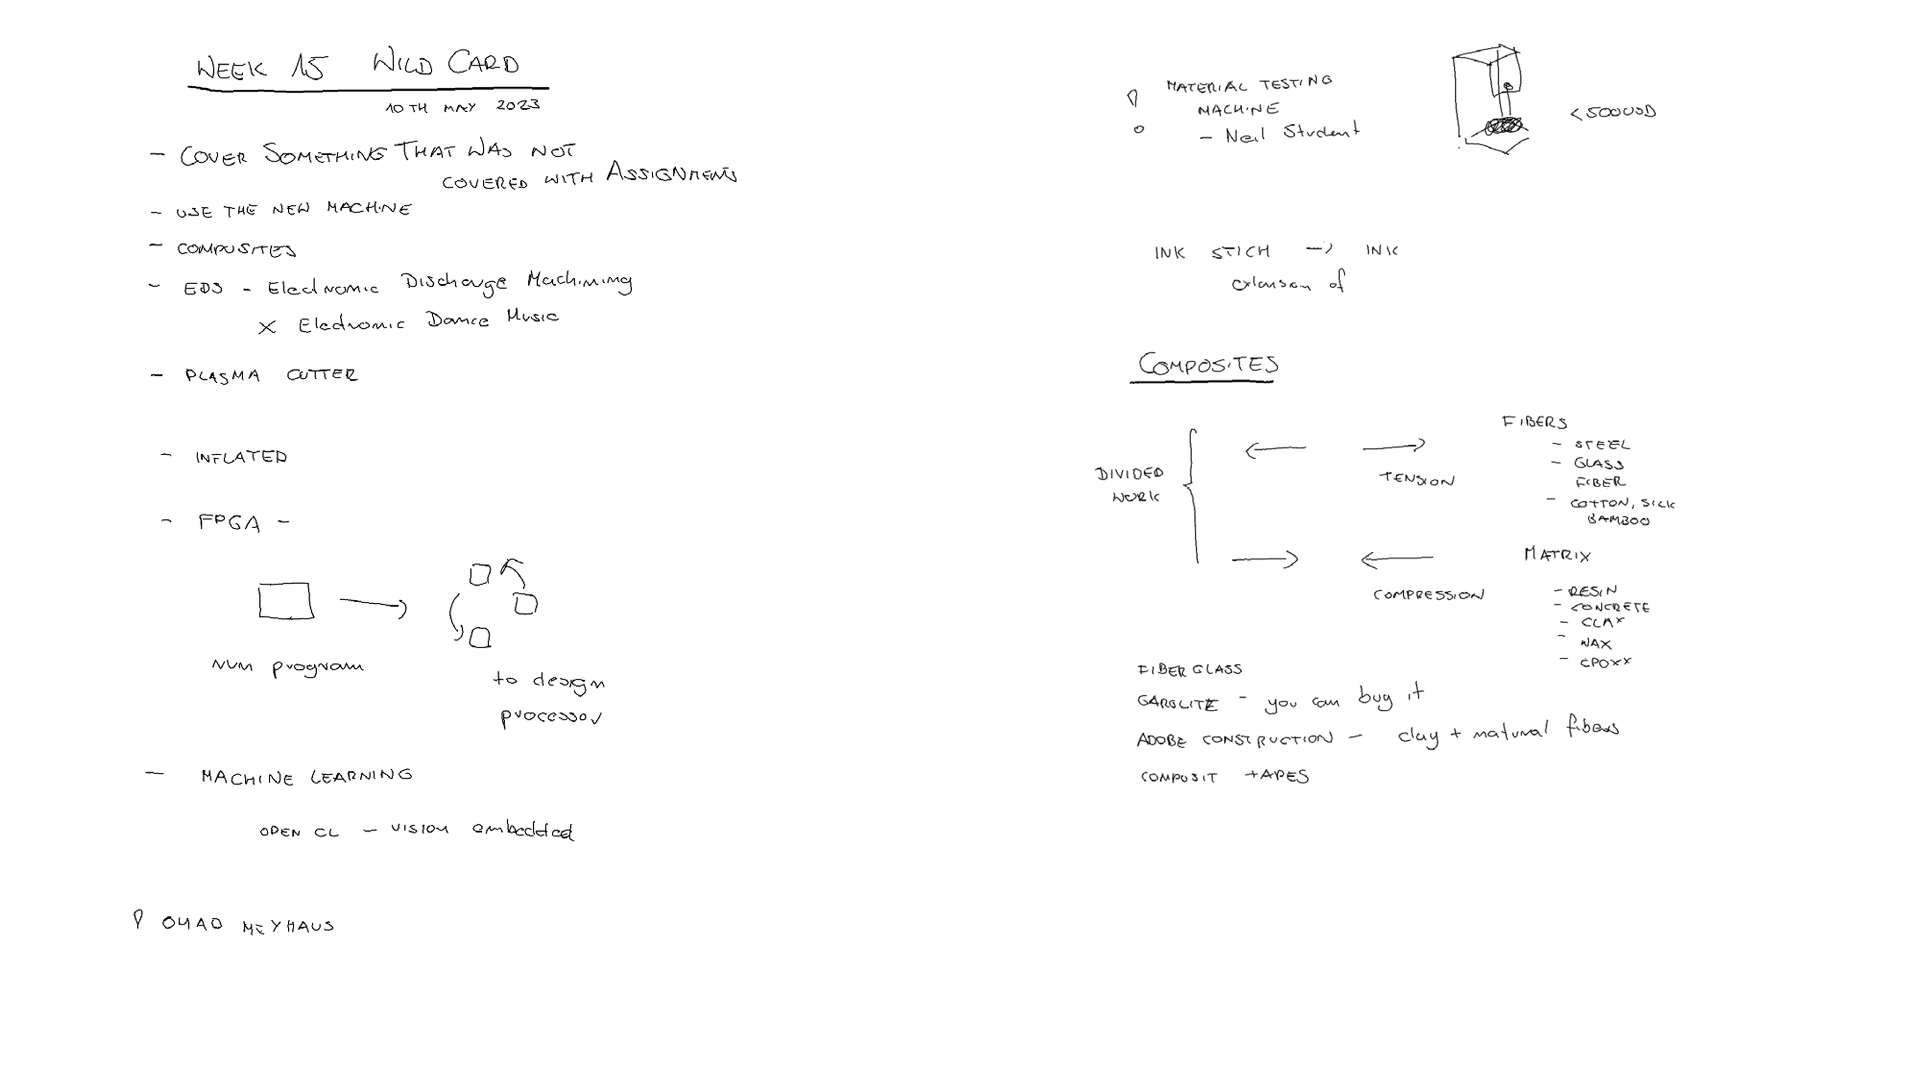 WEEK 15 WILD CARD
10TH MAY 2023
- COVER SOMETHING THAT WAS NOT
COVERED WITH ASSIGNMENTS
- USE THE NEW MACHINE
- COMPOSITES
- EDS - Electronic Discharge Machining
X Electronic Dance Music
- PLASMA CUTTER
- INFLATED
- FPGA -
num program
to design
processor
- MACHINE LEARNING
OPEN CL - VISION embedded
MEYHAUS
MATERIAL TESTING
MACHINE
- Neil Student
< 500 USD
INK STICH -> INK
extension of
COMPOSITES
DIVIDED
WORK
TENSION
FIBERS
- STEEL
- GLASS
FIBER
- COTTON, SILK
BAMBOO
COMPRESSION
MATRIX
- RESIN
- CONCRETE
- CLAY
- WAX
- EPOXY
FIBERGLASS
GAROLITE - you can buy it
ADOBE CONSTRUCTION - clay + natural fibers
COMPOSIT TAPES